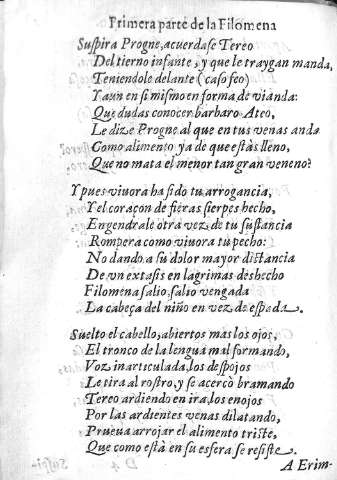 Primera parte de la Filomena
Suspira Progne, acuerdase Tereo
Del tierno infante, y que le traygan manda,
Teniendole delante (caso feo)
Y aun en si mismo en forma de vianda:
Que dudas conocer barbaro Ateo,
Le dize Progne al que en tus venas anda
Como alimento ya de que estàs lleno,
Que no mata el menor tan gran veneno?
Y pues viuora ha sido tu arrogancia,
Y el coraçon de fieras sierpes hecho,
Engendrale otra vez de tu sustancia
Rompera como viuora tu pecho:
No dando a su dolor mayor distancia
De vn extasis en lagrimas deshecho
Filomena salio, salio vengada
La cabeça del niño en vez de espada.
Suelto el cabello, abiertos mas los ojos,
El tronco de la lengua mal formando,
Voz inarticulada, los despojos
Le tira al rostro, y se acercò bramando
Tereo ardiendo en ira, los enojos
Por las ardientes venas dilatando,
Prueua arrojar el alimento triste,
Que como està en su esfera se resiste.
A Erim-